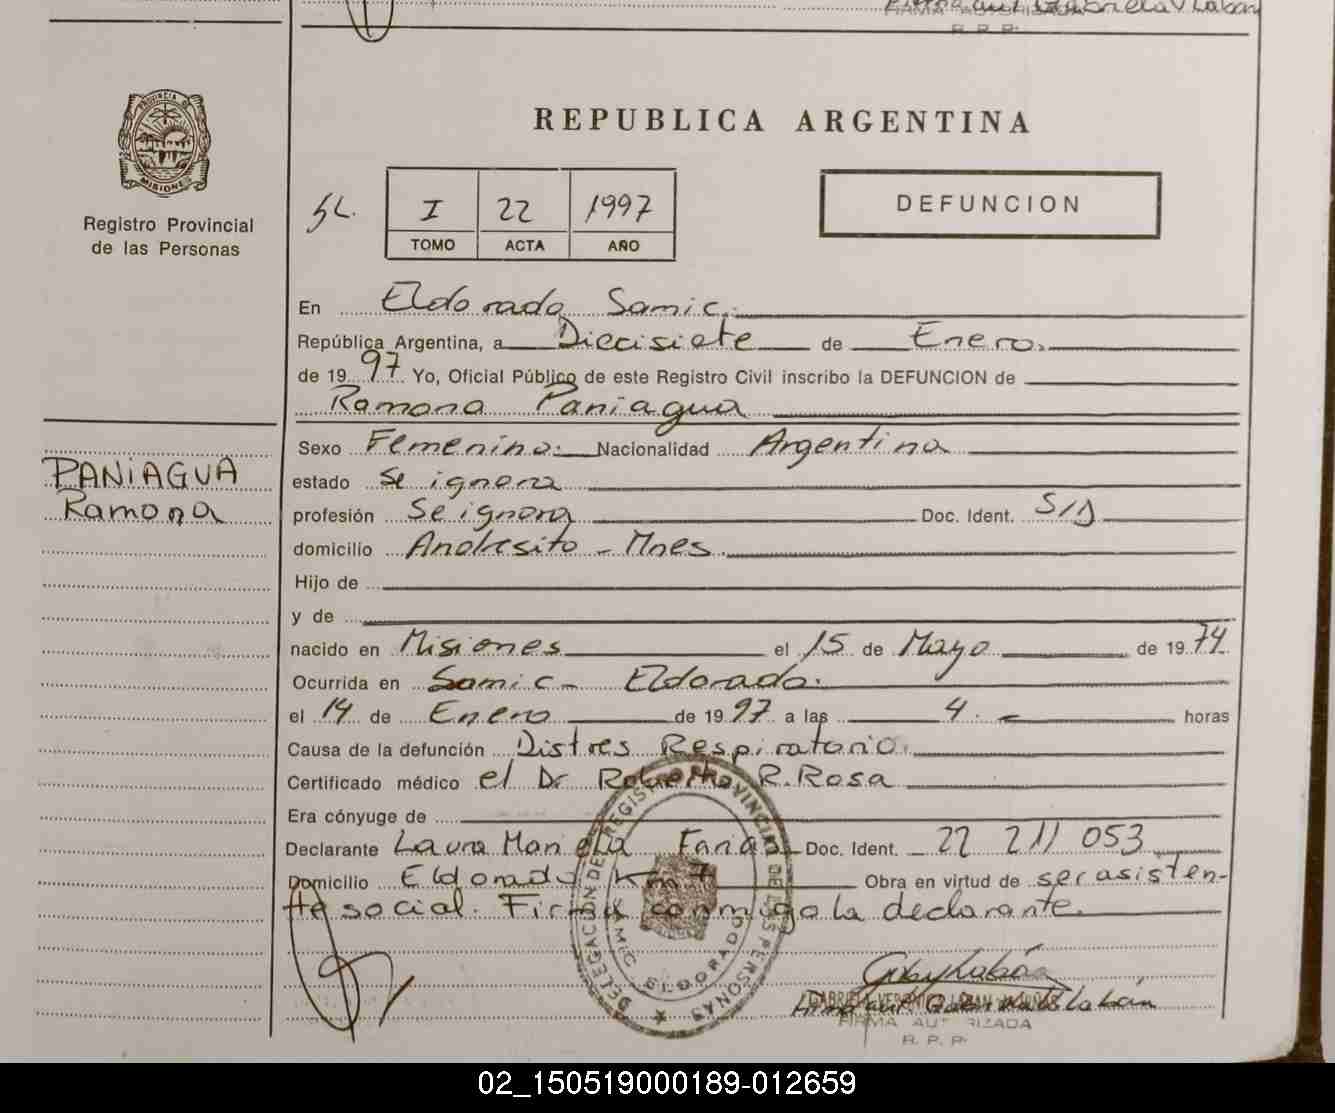 FIRMA AUTORIZADA
R. P. P.
PROVINCIA DE
MISIONES
Registro Provincial
de las Personas
REPUBLICA ARGENTINA
I 22 1997
TOMO ACTA AÑO
DEFUNCION
En Eldorado Samic.
República Argentina, a Diecisiete de Enero.
de 19 97 Yo, Oficial Público de este Registro Civil inscribo la DEFUNCION de
Ramona Paniagua
PANIAGUA
Ramona
Sexo Femenino. Nacionalidad Argentina
estado Se ignora
profesión Se ignora Doc. Ident. S/D
domicilio Andresito - Mnes.
Hijo de
y de
nacido en Misiones el 15 de Mayo de 19 74
Ocurrida en Samic - Eldorado.
el 14 de Enero de 19 97 a las 4. horas
Causa de la defunción Distres Respiratorio.
Certificado médico el Dr Roberto R. Rosa
Era cónyuge de
Declarante Laura Mariela Faria Doc. Ident. 22 211 053
Domicilio Eldorado Km 7 Obra en virtud de ser asisten-
te social. Firma conmigo la declarante.
DELEGACION DEL REGISTRO PROVINCIAL DE LAS PERSONAS
SAMIC ELDORADO
Gaby Labán
FIRMA AUTORIZADA
R. P. P.
02_150519000189-012659